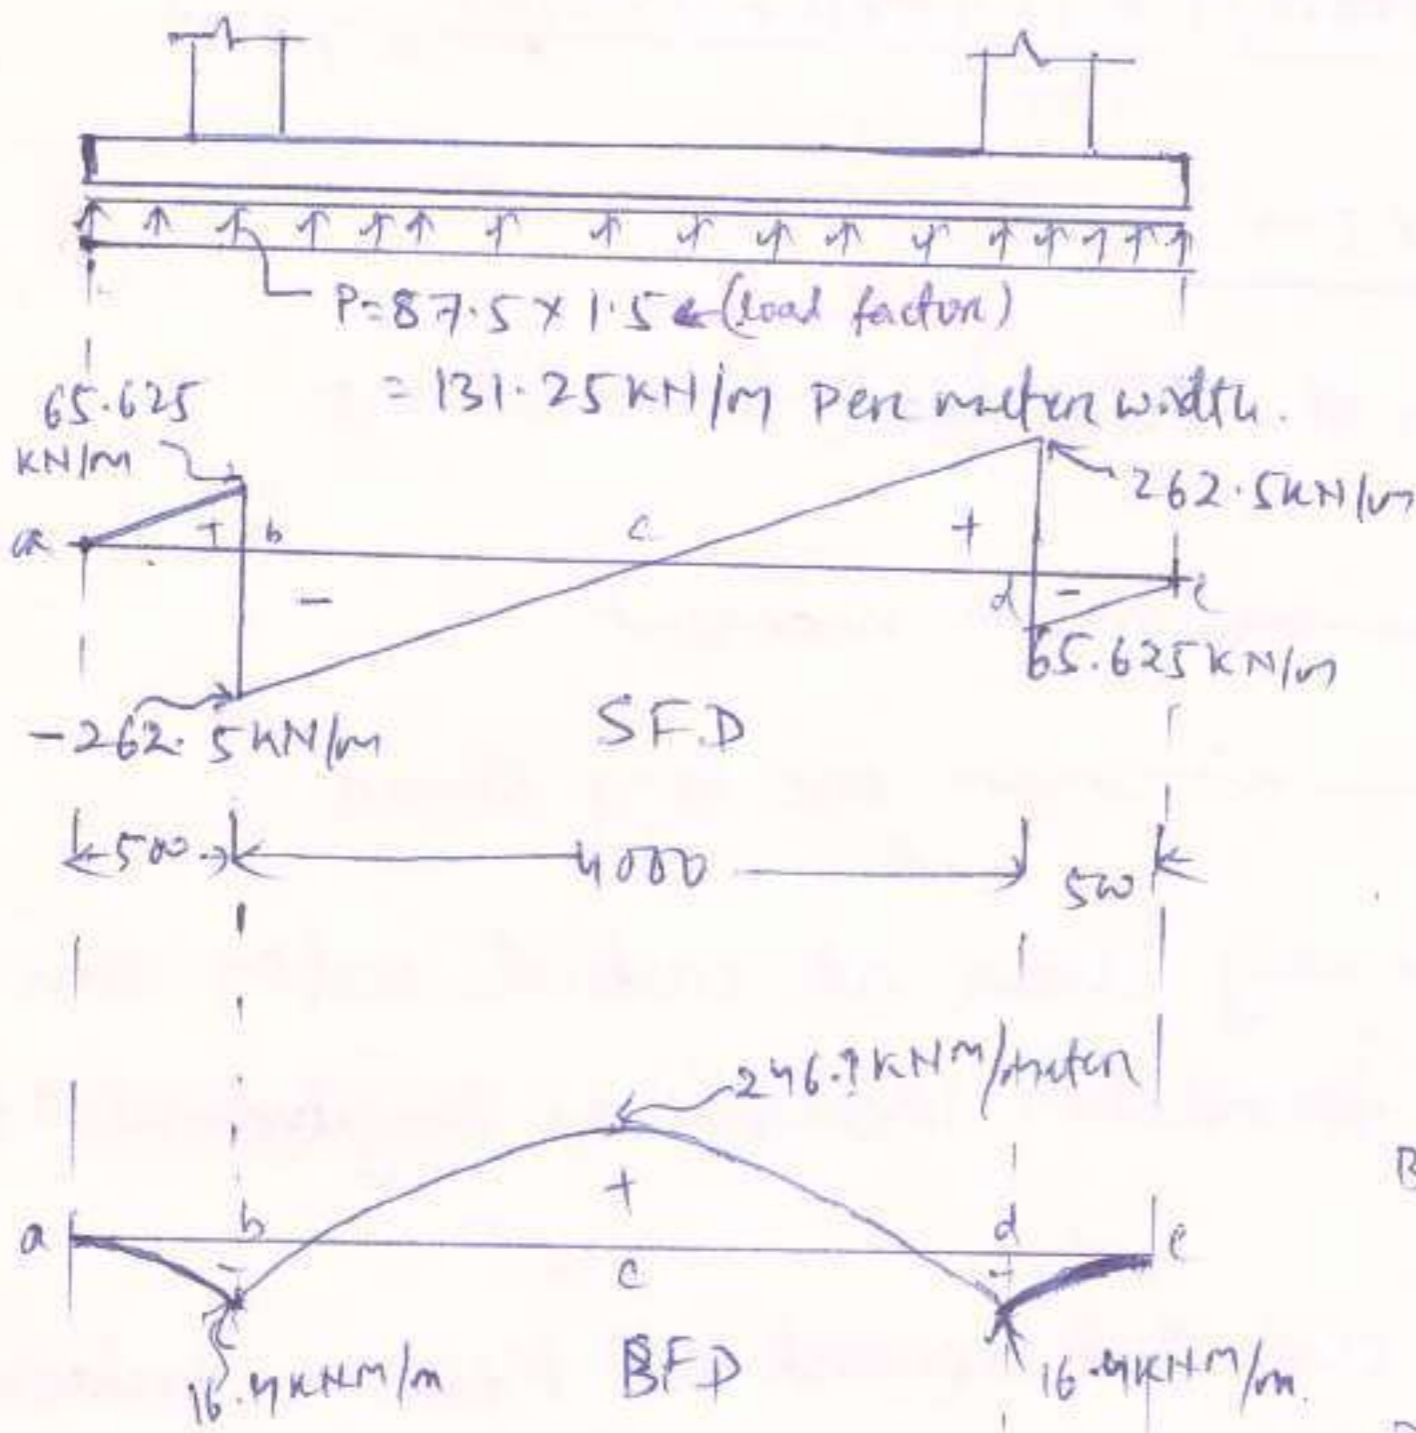 P=87.5 × 1.5 ← (load factor)
= 131.25 KN/m per meter width.
65.625
KN/m
262.5KN/m
a
+
b
c
+
-
d
-
e
65.625KN/m
-262.5KN/m
SFD
500
4000
500
KNm/meter
a
b
+
d
e
-
c
-
16.4KNM/m
BFD
16.4KNM/m.